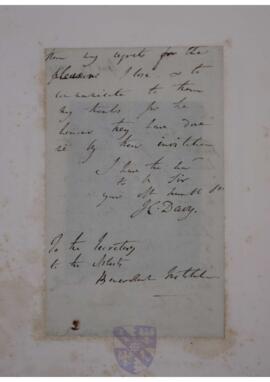 them my regrets for the
pleasure I lose & to
communicate to them
my thanks for the
honour they have done
me by their invitation
I have the
to be Sir
your obt humble
J C Davy.
To the Secretary
to the Artists
Benevolent Institution